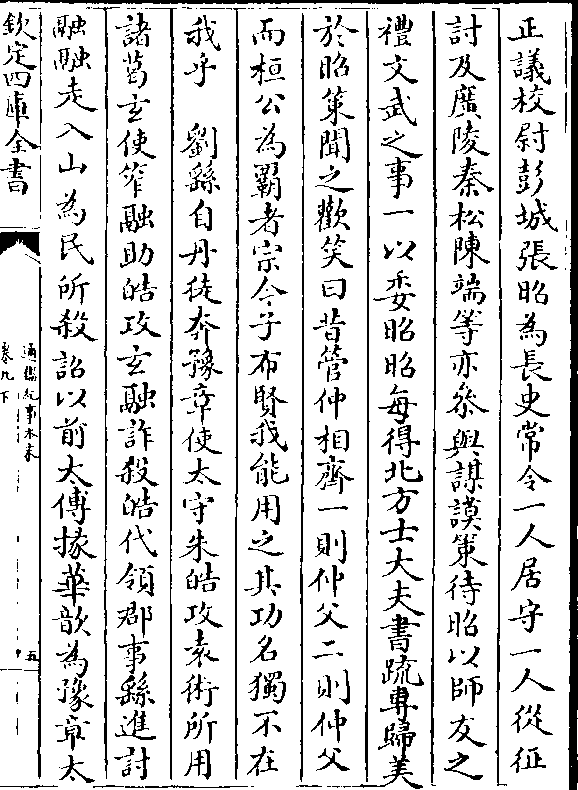 正議校尉彭城張昭為長史常令一人居守一人從征
討及廣陵秦松陳端等亦叅與謀謨策待昭以師友之
禮文武之事一以委昭昭每得北方士大夫書疏專歸美
於昭策聞之歡笑曰昔管仲相齊一則仲父二則仲父
而桓公為霸者宗今子布賢我能用之其功名獨不在
我乎　劉繇自丹徒奔豫章使太守朱皓攻袁術所用
諸葛玄使笮融助皓攻玄融詐殺皓代領郡事繇進討
融融走入山為民所殺詔以前太傅掾華歆為豫章太
欽定四庫全書
通鑑紀事本末
卷九下
五